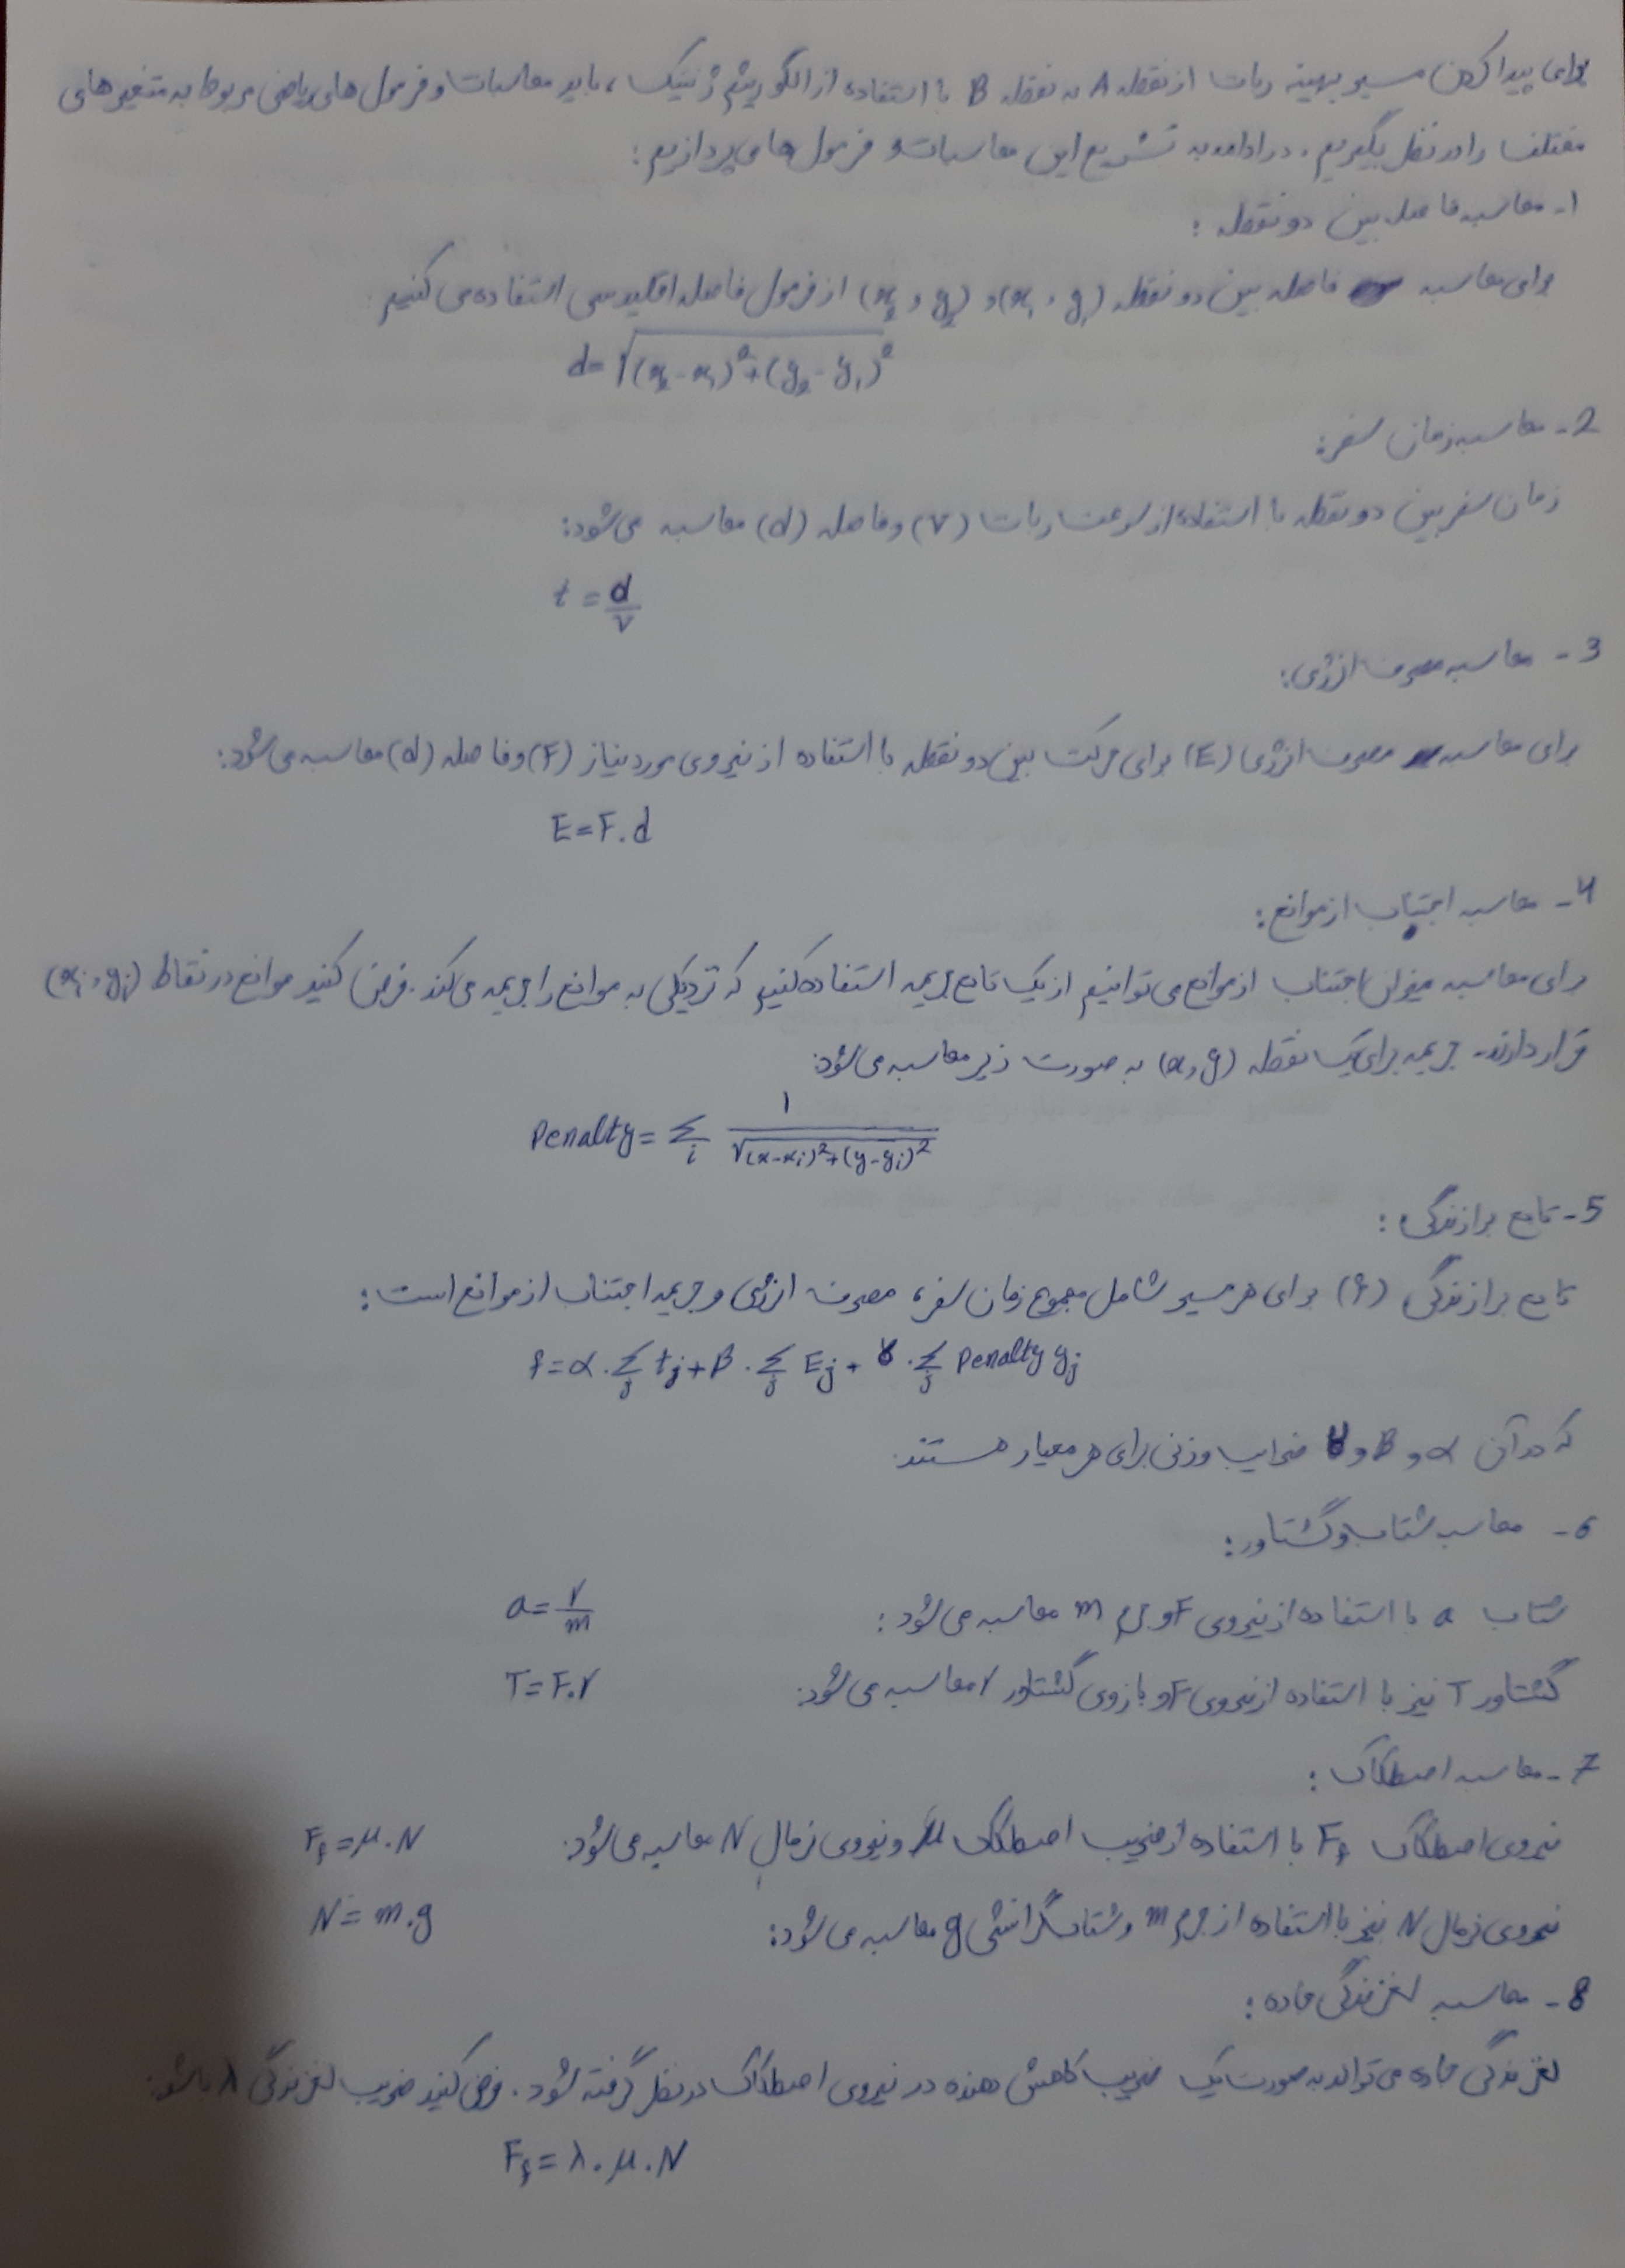 برای پیدا کردن مسیر بهینه ربات از نقطه A به نقطه B با استفاده از الگوریتم ژنتیک ، باید محاسبات و فرمول های ریاضی مربوط به متغیرهای
مختلف را در نظر بگیریم . در ادامه به تشریع این محاسبات و فرمول ها می پردازیم :
۱- محاسبه فاصله بین دو نقطه :
برای محاسبه فاصله بین دو نقطه (x₁ , y₁) و (x₂ , y₂) از فرمول فاصله اقلیدسی استفاده می کنیم :
d=√(x₂-x₁)²+(y₂-y₁)²
2- محاسبه زمان سفر :
زمان سفر بین دو نقطه با استفاده از سرعت ربات (v) و فاصله (d) محاسبه می شود :
t = d/v
3- محاسبه مصرف انرژی :
برای محاسبه مصرف انرژی (E) برای حرکت بین دو نقطه با استفاده از نیروی مورد نیاز (F) و فاصله (d) محاسبه می شود :
E=F.d
4- محاسبه اجتناب از موانع :
برای محاسبه میزان اجتناب از موانع می توانیم از یک تابع جریمه استفاده کنیم که نزدیکی به موانع را جریمه می کند . فرض کنید موانع در نقاط (xᵢ , yᵢ)
قرار دارند . جریمه برای یک نقطه (x , y) به صورت زیر محاسبه می شود :
Penalty= Σᵢ 1/√(x-xᵢ)²+(y-yᵢ)²
5- تابع برازندگی :
تابع برازندگی (f) برای هر مسیر شامل مجموع زمان سفر ، مصرف انرژی و جریمه اجتناب از موانع است :
f=α.Σⱼ tⱼ+β.Σⱼ Eⱼ+γ.Σⱼ Penalty yⱼ
که در آن α و β و γ ضرایب وزنی برای هر معیار هستند .
6- محاسبه شتاب و گشتاور :
شتاب a با استفاده از نیروی F و جرم m محاسبه می شود : a=r/m
گشتاور T نیز با استفاده از نیروی F و بازوی گشتاور r محاسبه می شود : T=F.r
7- محاسبه اصطکاک :
نیروی اصطکاک F_f با استفاده از ضریب اصطکاک μ و نیروی نرمال N محاسبه می شود : F_f=μ.N
نیروی نرمال N نیز با استفاده از جرم m و شتاب گرانشی g محاسبه می شود : N=m.g
8- محاسبه لغزندگی جاده :
لغزندگی جاده می تواند به صورت یک ضریب کاهش دهنده در نیروی اصطکاک در نظر گرفته شود . فرض کنید ضریب لغزندگی λ باشد :
F_f=λ.μ.N